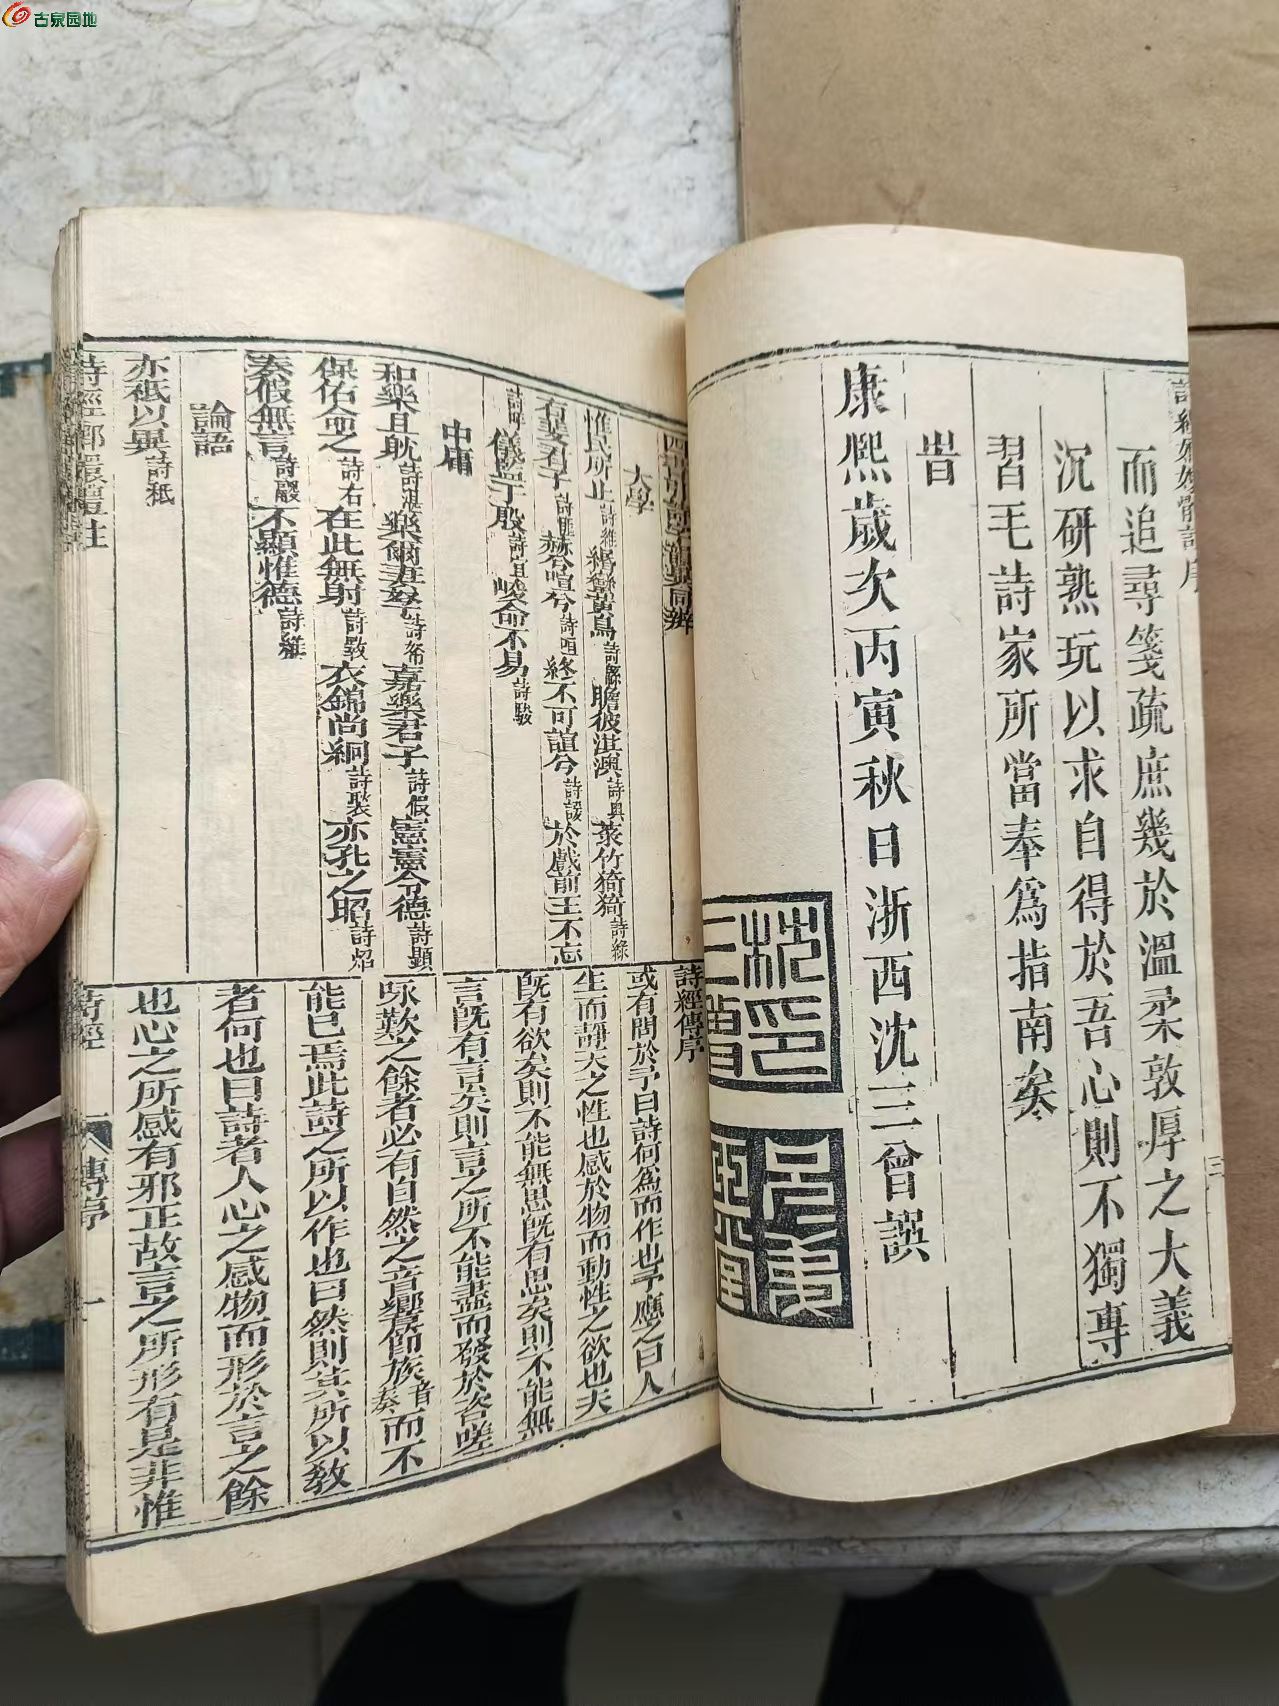 古泉园地
而追尋箋疏庶幾於溫柔敦厚之大義
沉研熟玩以求自得於吾心則不獨專
習毛詩家所當奉為指南矣
旹
康熙歲次丙寅秋日浙西沈三曾譔
沈印三曾
大學
惟民所止詩維緡蠻黃鳥詩緜瞻彼淇澳詩奧菉竹猗猗詩綠
有斐君子詩匪赫兮喧兮詩咺終不可諠兮詩諼於戲前王不忘
詩呼儀監于殷詩宜峻命不易詩駿
中庸
和樂且耽詩湛樂爾妻孥詩帑嘉樂君子詩假憲憲令德詩顯
保佑命之詩右在此無射詩斁衣錦尚絅詩褧亦孔之昭詩炤
奏假無言詩鬷不顯惟德詩維
論語
亦祇以異詩祗
詩經傳序
或有問於予曰詩何為而作也予應之曰人
生而靜天之性也感於物而動性之欲也夫
既有欲矣則不能無思既有思矣則不能無
言既有言矣則言之所不能盡而發於咨嗟
咏歎之餘者必有自然之音響節族音奏而不
能已焉此詩之所以作也曰然則其所以教
者何也曰詩者人心之感物而形於言之餘
也心之所感有邪正故言之所形有是非惟
詩經
傳序
一